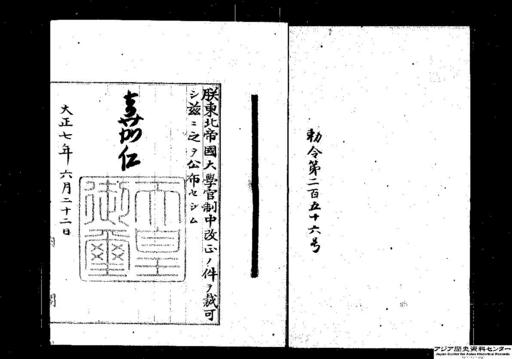 勅令第二百五十六号
朕東北帝國大學官制中改正ノ件ヲ裁可
シ茲ニ之ヲ公布セシム
嘉仁
天皇
御璽
大正七年六月二十二日
内
閣
アジア歴史資料センター
Japan Center for Asian Historical Records